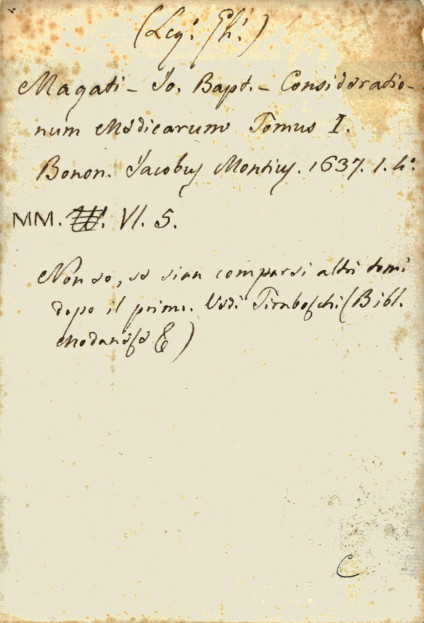 (Leg. Gh.)
Magati - Jo. Bapt. - Consideratio-
num Medicarum Tomus I.
Bonon. Jacobus Montius. 1637. 1. 4°
MM. VI. 5.
Non so, se sian comparsi altri tomi
dopo il primo. Vedi Tiraboschi (Bibl.
Modanese
C